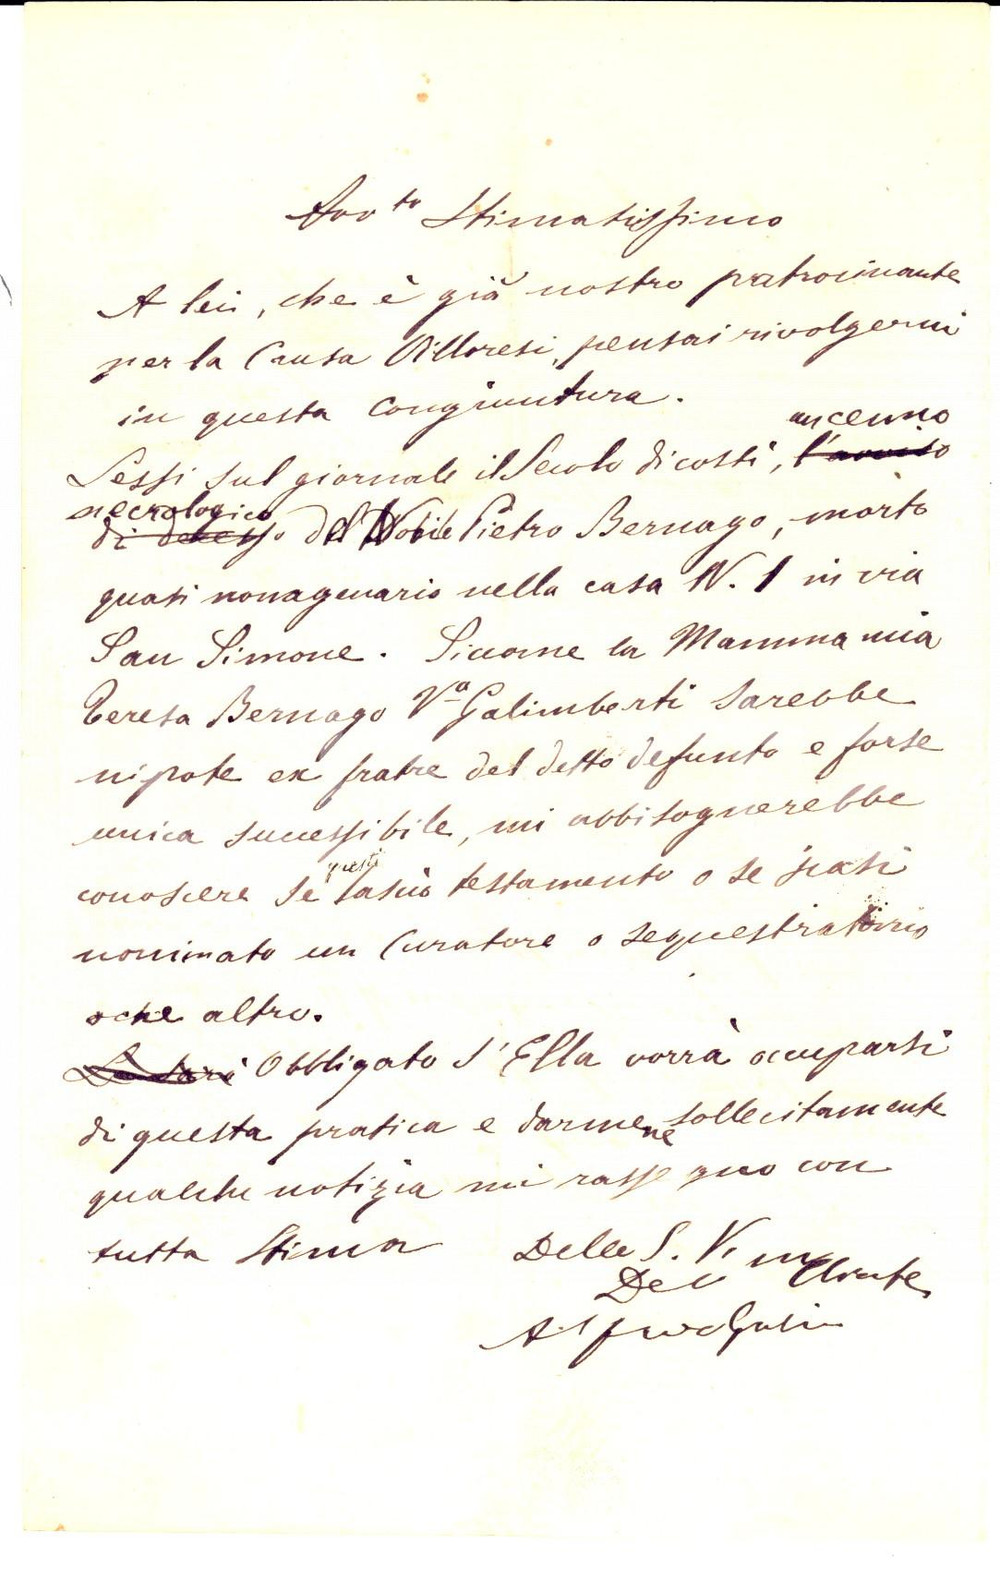 Avv.to Stimatissimo
A lei, che è già nostro patrocinante
per la Causa Villoresi, pensai rivolgermi
in questa congiuntura.
Lessi sul giornale il Secolo di costì, l'avviso un cenno
necrologico
di decesso del Nobile Pietro Bernago, morto
quasi nonagenario nella casa N. 1 in via
San Simone. Siccome la Mamma mia
Teresa Bernago Va Galimberti sarebbe
nipote ex fratre del detto defunto e forse
unica successibile, mi abbisognerebbe
conoscere se questi lasciò testamento o se siasi
nominato un Curatore o sequestratario
o che altro.
Le sarò Obbligato s'Ella vorrà occuparsi
di questa pratica e darmene sollecitamente
qualche notizia mi rassegno con
tutta Stima Della S. V.
Dev